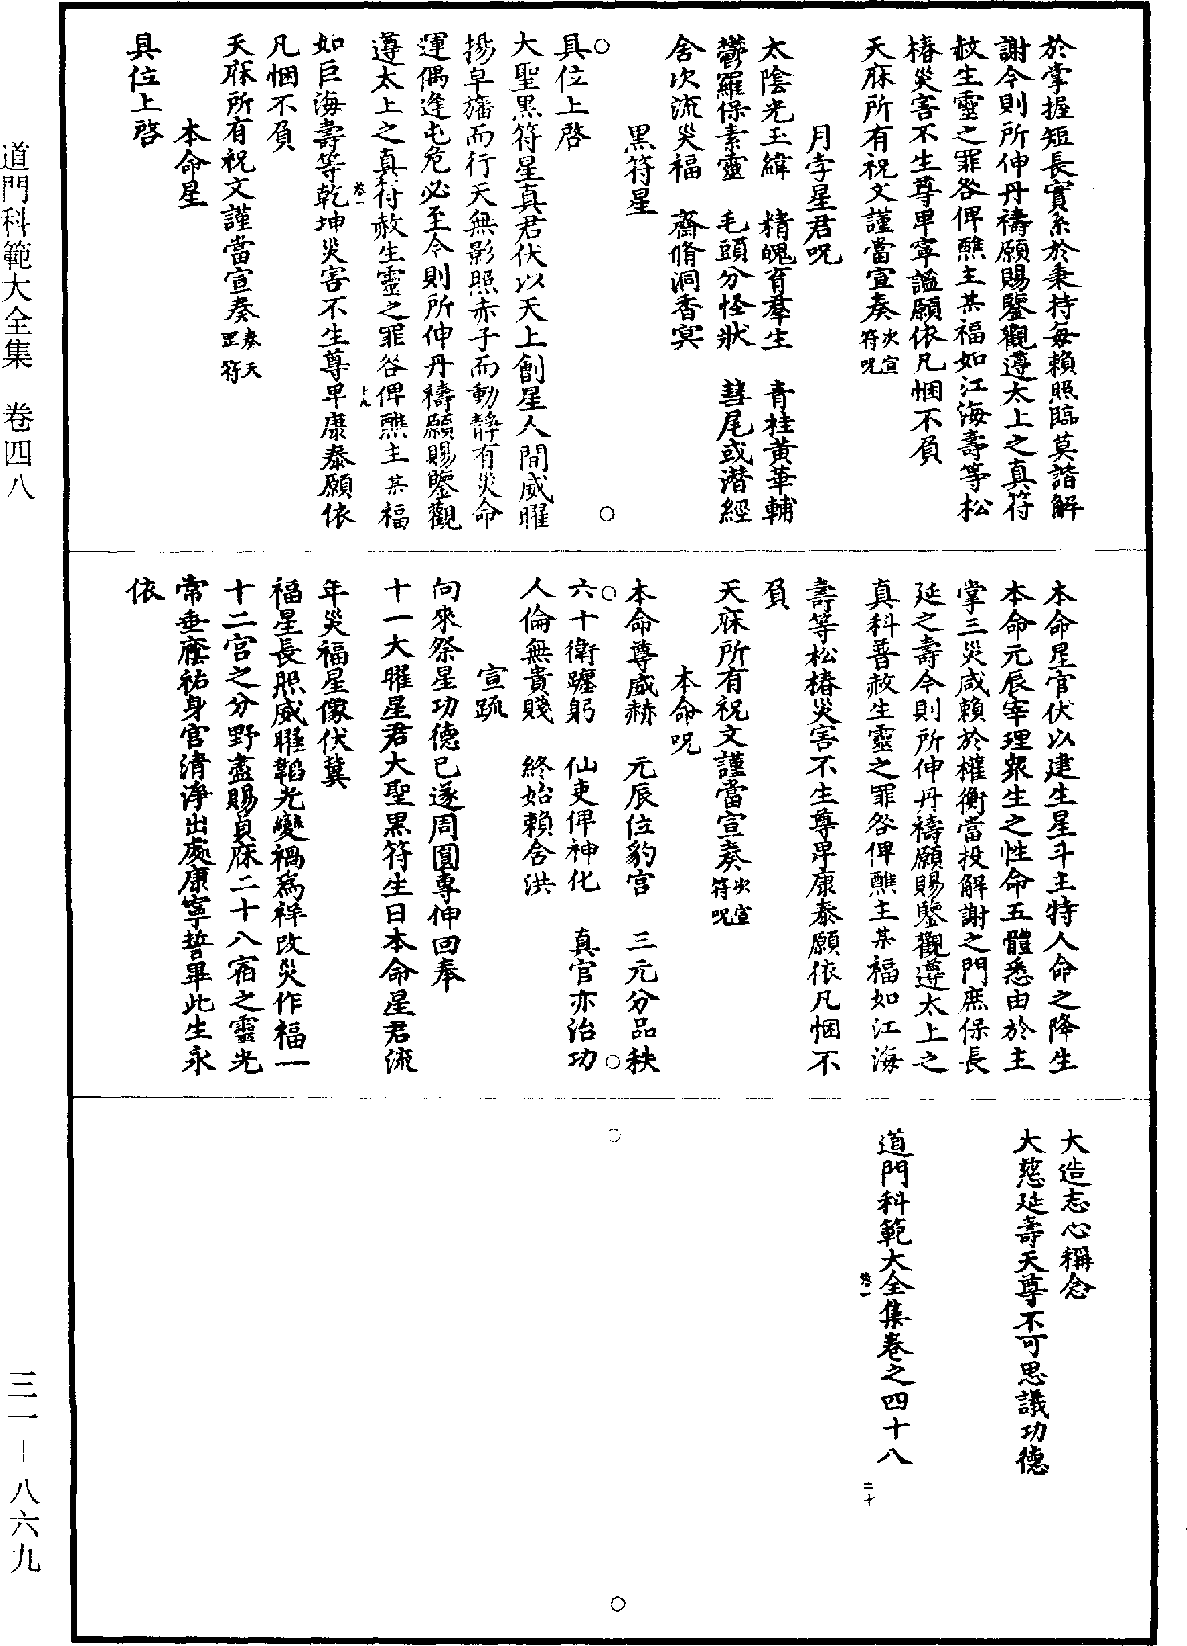 於掌握短長實系於秉持每賴照臨莫諧解
謝今則所伸丹禱願賜鑒觀遵太上之真符
赦生靈之罪咎俾醮主某福如江海壽等松
椿災害不生尊卑寧謐願依凡悃不負
天庥所有祝文謹當宣奏次宣符呪
月孛星君呪
太陰光玉緯　精魄育羣生　青桂黃華輔
鬱羅保素靈　毛頭分怪狀　彗尾或潛經
舍次流災福　齋脩洞香冥
黑符星
具位上啓
大聖黑符星真君伏以天上創星人間威曜
揚皁旛而行天無影照赤子而動靜有災命
運偶逢屯危必至今則所伸丹禱願賜鑒觀
遵太上之真符赦生靈之罪咎俾醮主某福
如巨海壽等乾坤災害不生尊卑康泰願依
凡悃不負
天庥所有祝文謹當宣奏
本命星
具位上啓
本命星官伏以建生星斗主特人命之降生
本命元辰宰理衆生之性命五體悉由於主
掌三災咸賴於權衡當投解謝之門庶保長
延之壽今則所伸丹禱願賜鑒觀遵太上之
真科普赦生靈之罪咎俾醮主某福如江海
壽等松椿災害不生尊卑康泰願依凡悃不
負
天庥所有祝文謹當宣奏次宣符呪
本命呪
本命尊威赫　元辰位豹宮　三元分品秩
六十衛躔躬　仙吏俾神化　真官亦治功
人倫無貴賤　終始賴含洪
宣疏
向來祭星功德已遂周圓專伸回奉
十一大曜星君大聖黑符生日本命星君流
年災福星像伏冀
福星長照威曜韜光變禍爲祥改災作福一
十二宮之分野盡賜貟庥二十八宿之靈光
常垂廕祐身宮清淨出處康寧誓畢此生永
依
大造志心稱念
大慈延壽天尊不可思議功德
道門科範大全集卷之四十八
二十
道門科範大全集　卷四八
三一－八六九